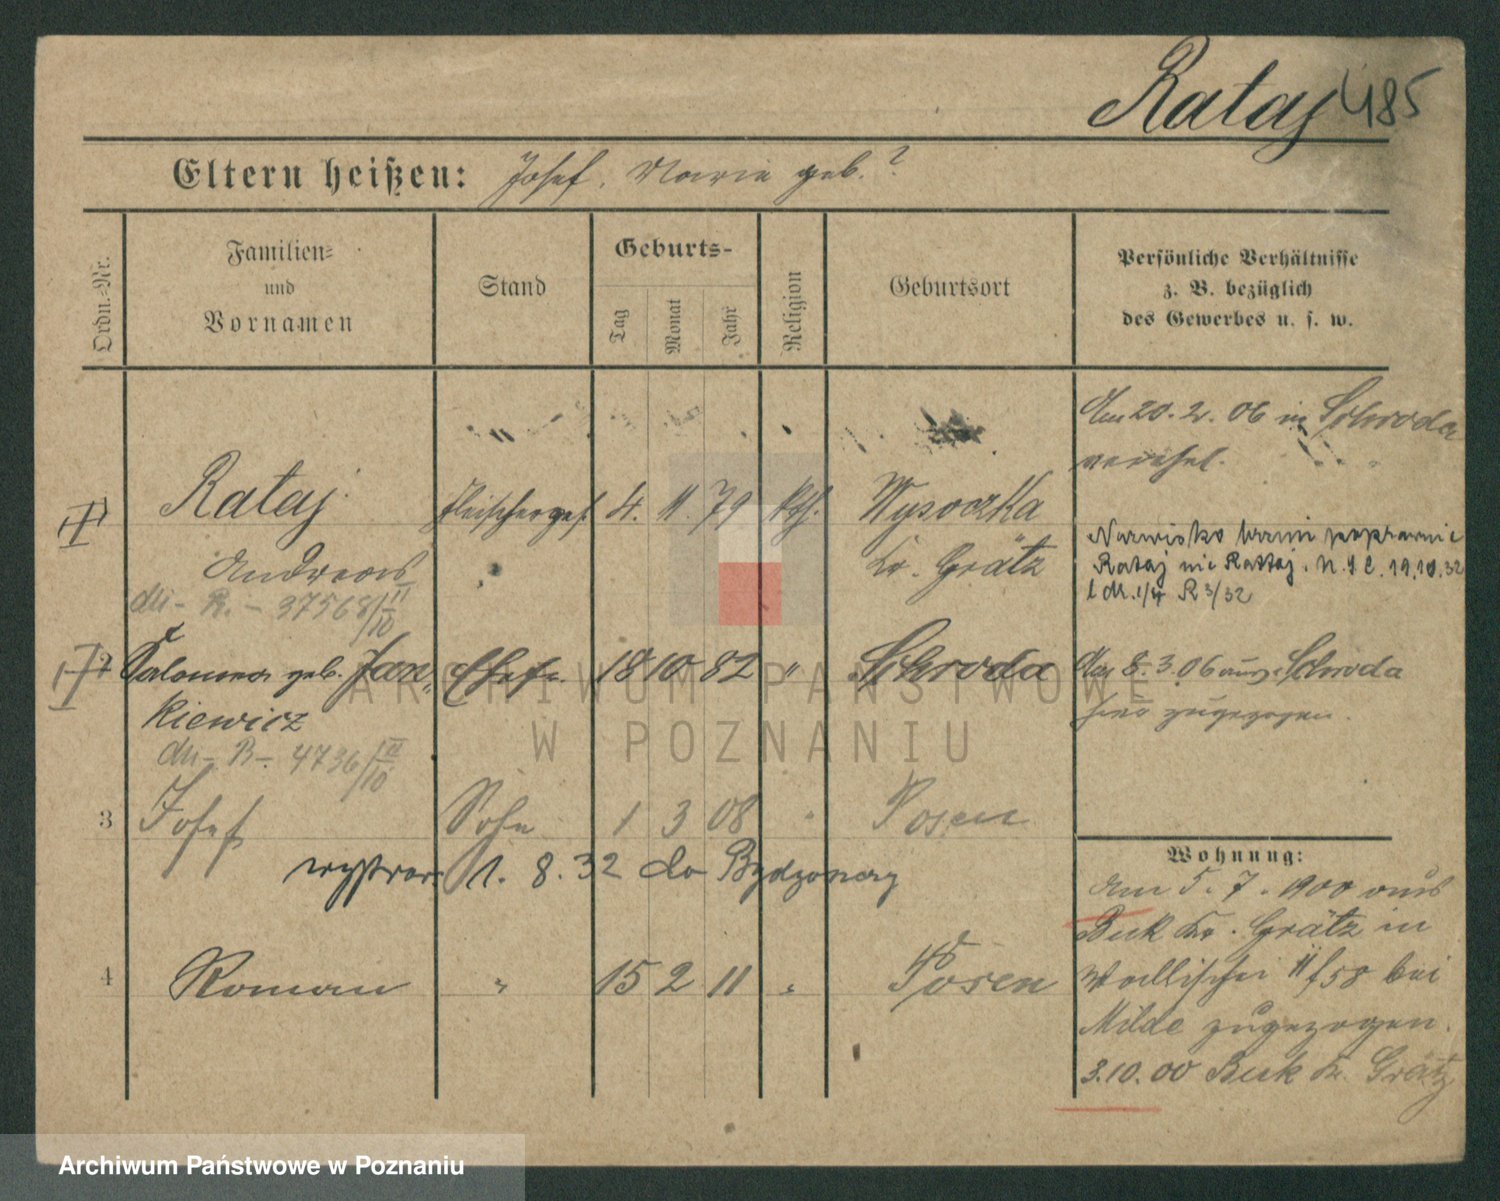 Rataj 485
Eltern heißen: Josef, Marie geb. ?
Ordn.-Nr.
Familien-
und
Vornamen
Stand
Geburts-
Tag
Monat
Jahr
Religion
Geburtsort
Persönliche Verhältnisse
z. B. bezüglich
des Gewerbes u. s. w.
Am 20. 2. 06 in Schroda
verehel.
Rataj Fleischerges. 4. 11. 79 kth. Wysoczka
Andreas Kr. Grätz
Nazwisko brzmi poprawnie
Rataj nie Rattaj. 19.10.32
R 3/32
R. - 37568
2 Salomea geb. Jan- Ehefr. 18 10 82 " Schroda
kiewicz
4736
8. 3. 06 aus Schroda
hier zugezogen.
3 Josef Sohn 1 3 08 " Posen
1. 8. 32 do Bydgoszczy
4 Roman " 15 2 11 " Posen
Wohnung:
Am 5. 7. 1900 aus
Buk Kr. Grätz in
Wallischei 58 bei
Milde zugezogen.
3.10.00 Buk Kr. Grätz
ARCHIWUM PAŃSTWOWE
W POZNANIU
Archiwum Państwowe w Poznaniu